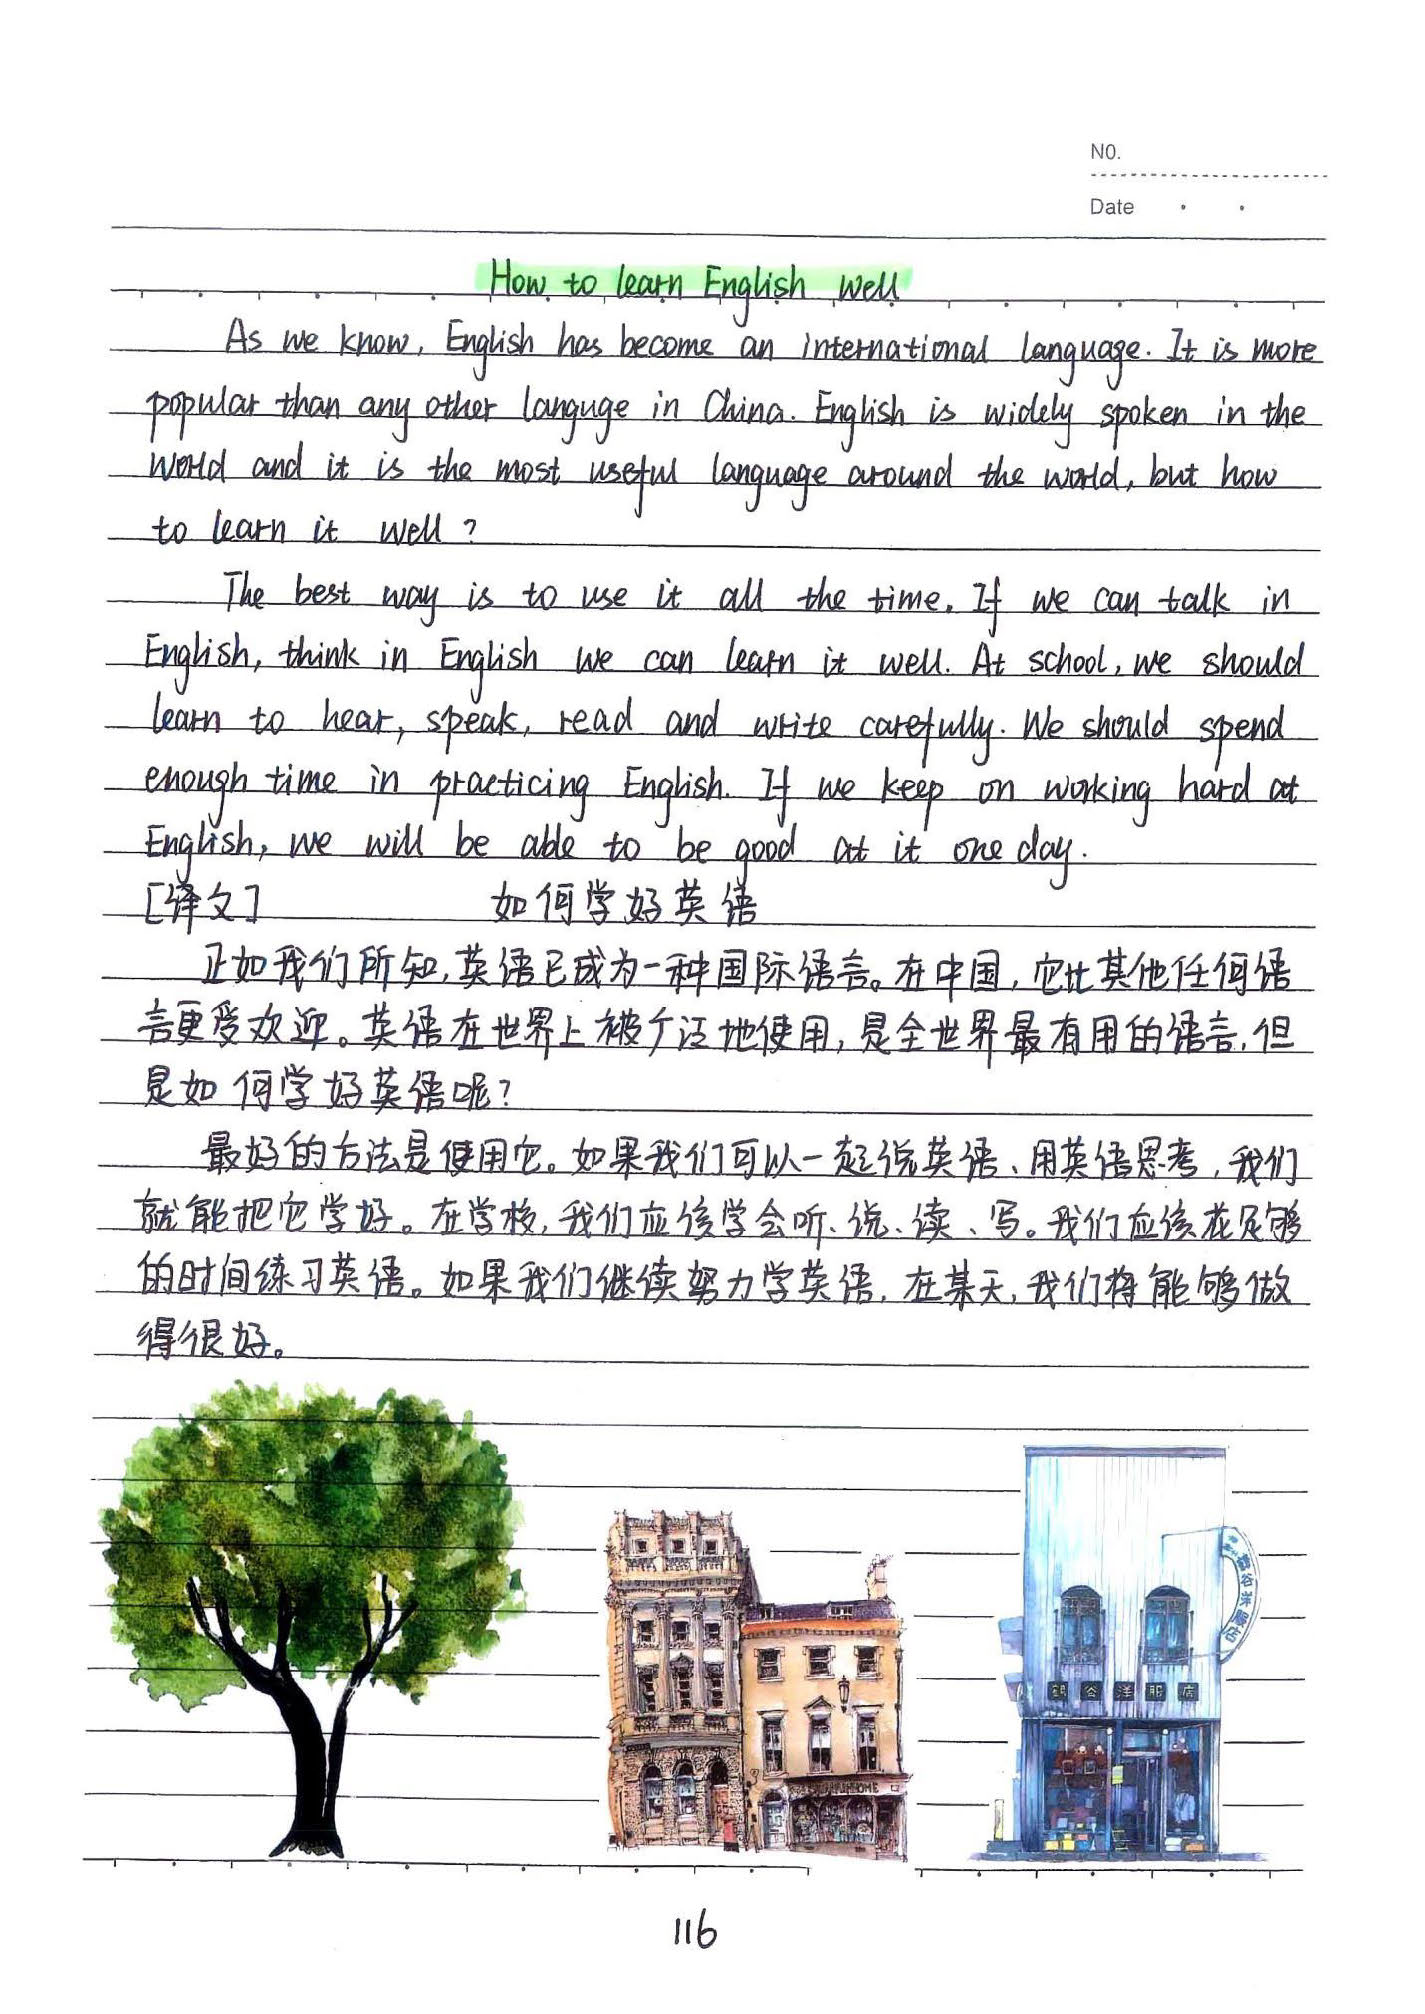 NO.
Date
How to learn English well
As we know, English has become an international language. It is more
popular than any other languge in China. English is widely spoken in the
world and it is the most useful language around the world, but how
to learn it well?
The best way is to use it all the time. If we can talk in
English, think in English we can learn it well. At school, we should
learn to hear, speak, read and write carefully. We should spend
enough time in practicing English. If we keep on working hard at
English, we will be able to be good at it one day.
[译文] 如何学好英语
正如我们所知,英语已成为一种国际语言。在中国,它比其他任何语
言更受欢迎。英语在世界上被广泛地使用,是全世界最有用的语言,但
是如何学好英语呢?
最好的方法是使用它。如果我们可以一起说英语、用英语思考,我们
就能把它学好。在学校,我们应该学会听、说、读、写。我们应该花足够
的时间练习英语。如果我们继续努力学英语,在某天,我们将能够做
得很好。
谷洋服店
116